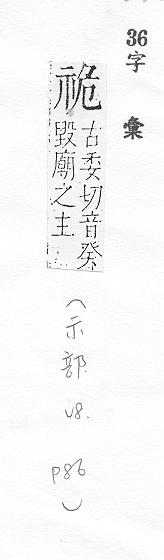 36
字彙
祪
古委切音癸
毀廟之主
(示部 V8. P86)